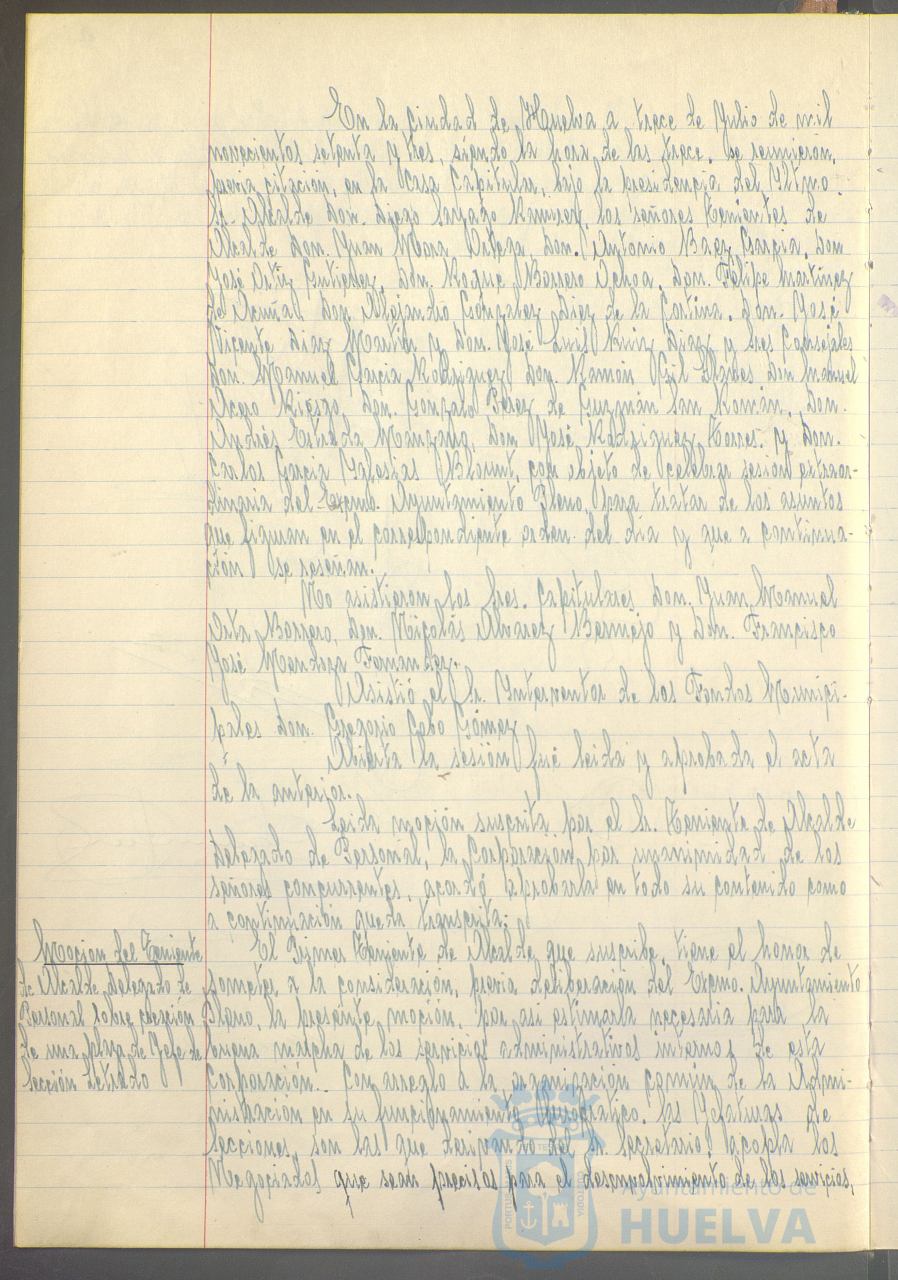 En la ciudad de Huelva a trece de Julio de mil
novecientos setenta y tres, siendo la hora de las trece, se reunieron,
previa citación, en la Casa Capitular, bajo la presidencia del Iltmo.
Sr. Alcalde Don Diego Ramirez los señores Tenientes de
Alcalde Don Juan Mora Ortega, Don Antonio Baez Garcia, Don
José Ortiz Gutierrez, Don Roque Barrero Ochoa, Don Felipe Martinez
de Acuña, Don Alejandro Gonzalez Diez de la Cortina, Don José
Vicente Diaz Martin y Don José Luis Ruiz Diaz y Sres Concejales
Don Manuel Garcia Rodriguez, Don Ramón Gil Don Manuel
Acero Riesgo, Don Gonzalo Perez de Guzmán San Román, Don
Andrés Estrada Manzano, Don José Rodriguez Torres y Don
Carlos Garcia Yglesias Blazent, con objeto de celebrar sesión extraor-
dinaria del Excmo. Ayuntamiento Pleno, para tratar de los asuntos
que figuran en el correspondiente orden del dia y que a continua-
ción se reseñan.
No asistieron los Sres. Capitulares Don Juan Manuel
Orta Barrero, Don Nicolás Alvarez Bermejo y Don Francisco
José Mendoza Fernandez.
Asistió el Sr. Interventor de los Fondos Munici-
pales Don Gregorio Cabo Gómez
Abierta la sesión fué leida y aprobada el acta
de la anterior.
Leida moción suscrita por el Sr. Teniente de Alcalde
Delegado de Personal, la Corporación por unanimidad de los
señores concurrentes, acordó aprobarla en todo su contenido como
a continuación queda transcrita:
Mocion del Teniente
de Alcalde Delegado de
Personal sobre creación
de una plaza de Jefe de
Sección Letrado
El Primer Teniente de Alcalde que suscribe, tiene el honor de
someter a la consideración, previa deliberación del Excmo. Ayuntamiento
Pleno, la presente moción, por asi estimarla necesaria para la
buena marcha de los servicios administrativos internos de esta
Corporación.- Con arreglo a la organización común de la Admi-
nistración en su funcionamiento burocratico, las Jefaturas de
Secciones, son las que derivando del Sr. Secretario, acopla los
Negociados que sean precisos para el desenvolvimiento de los servicios,
Ayuntamiento de
HUELVA